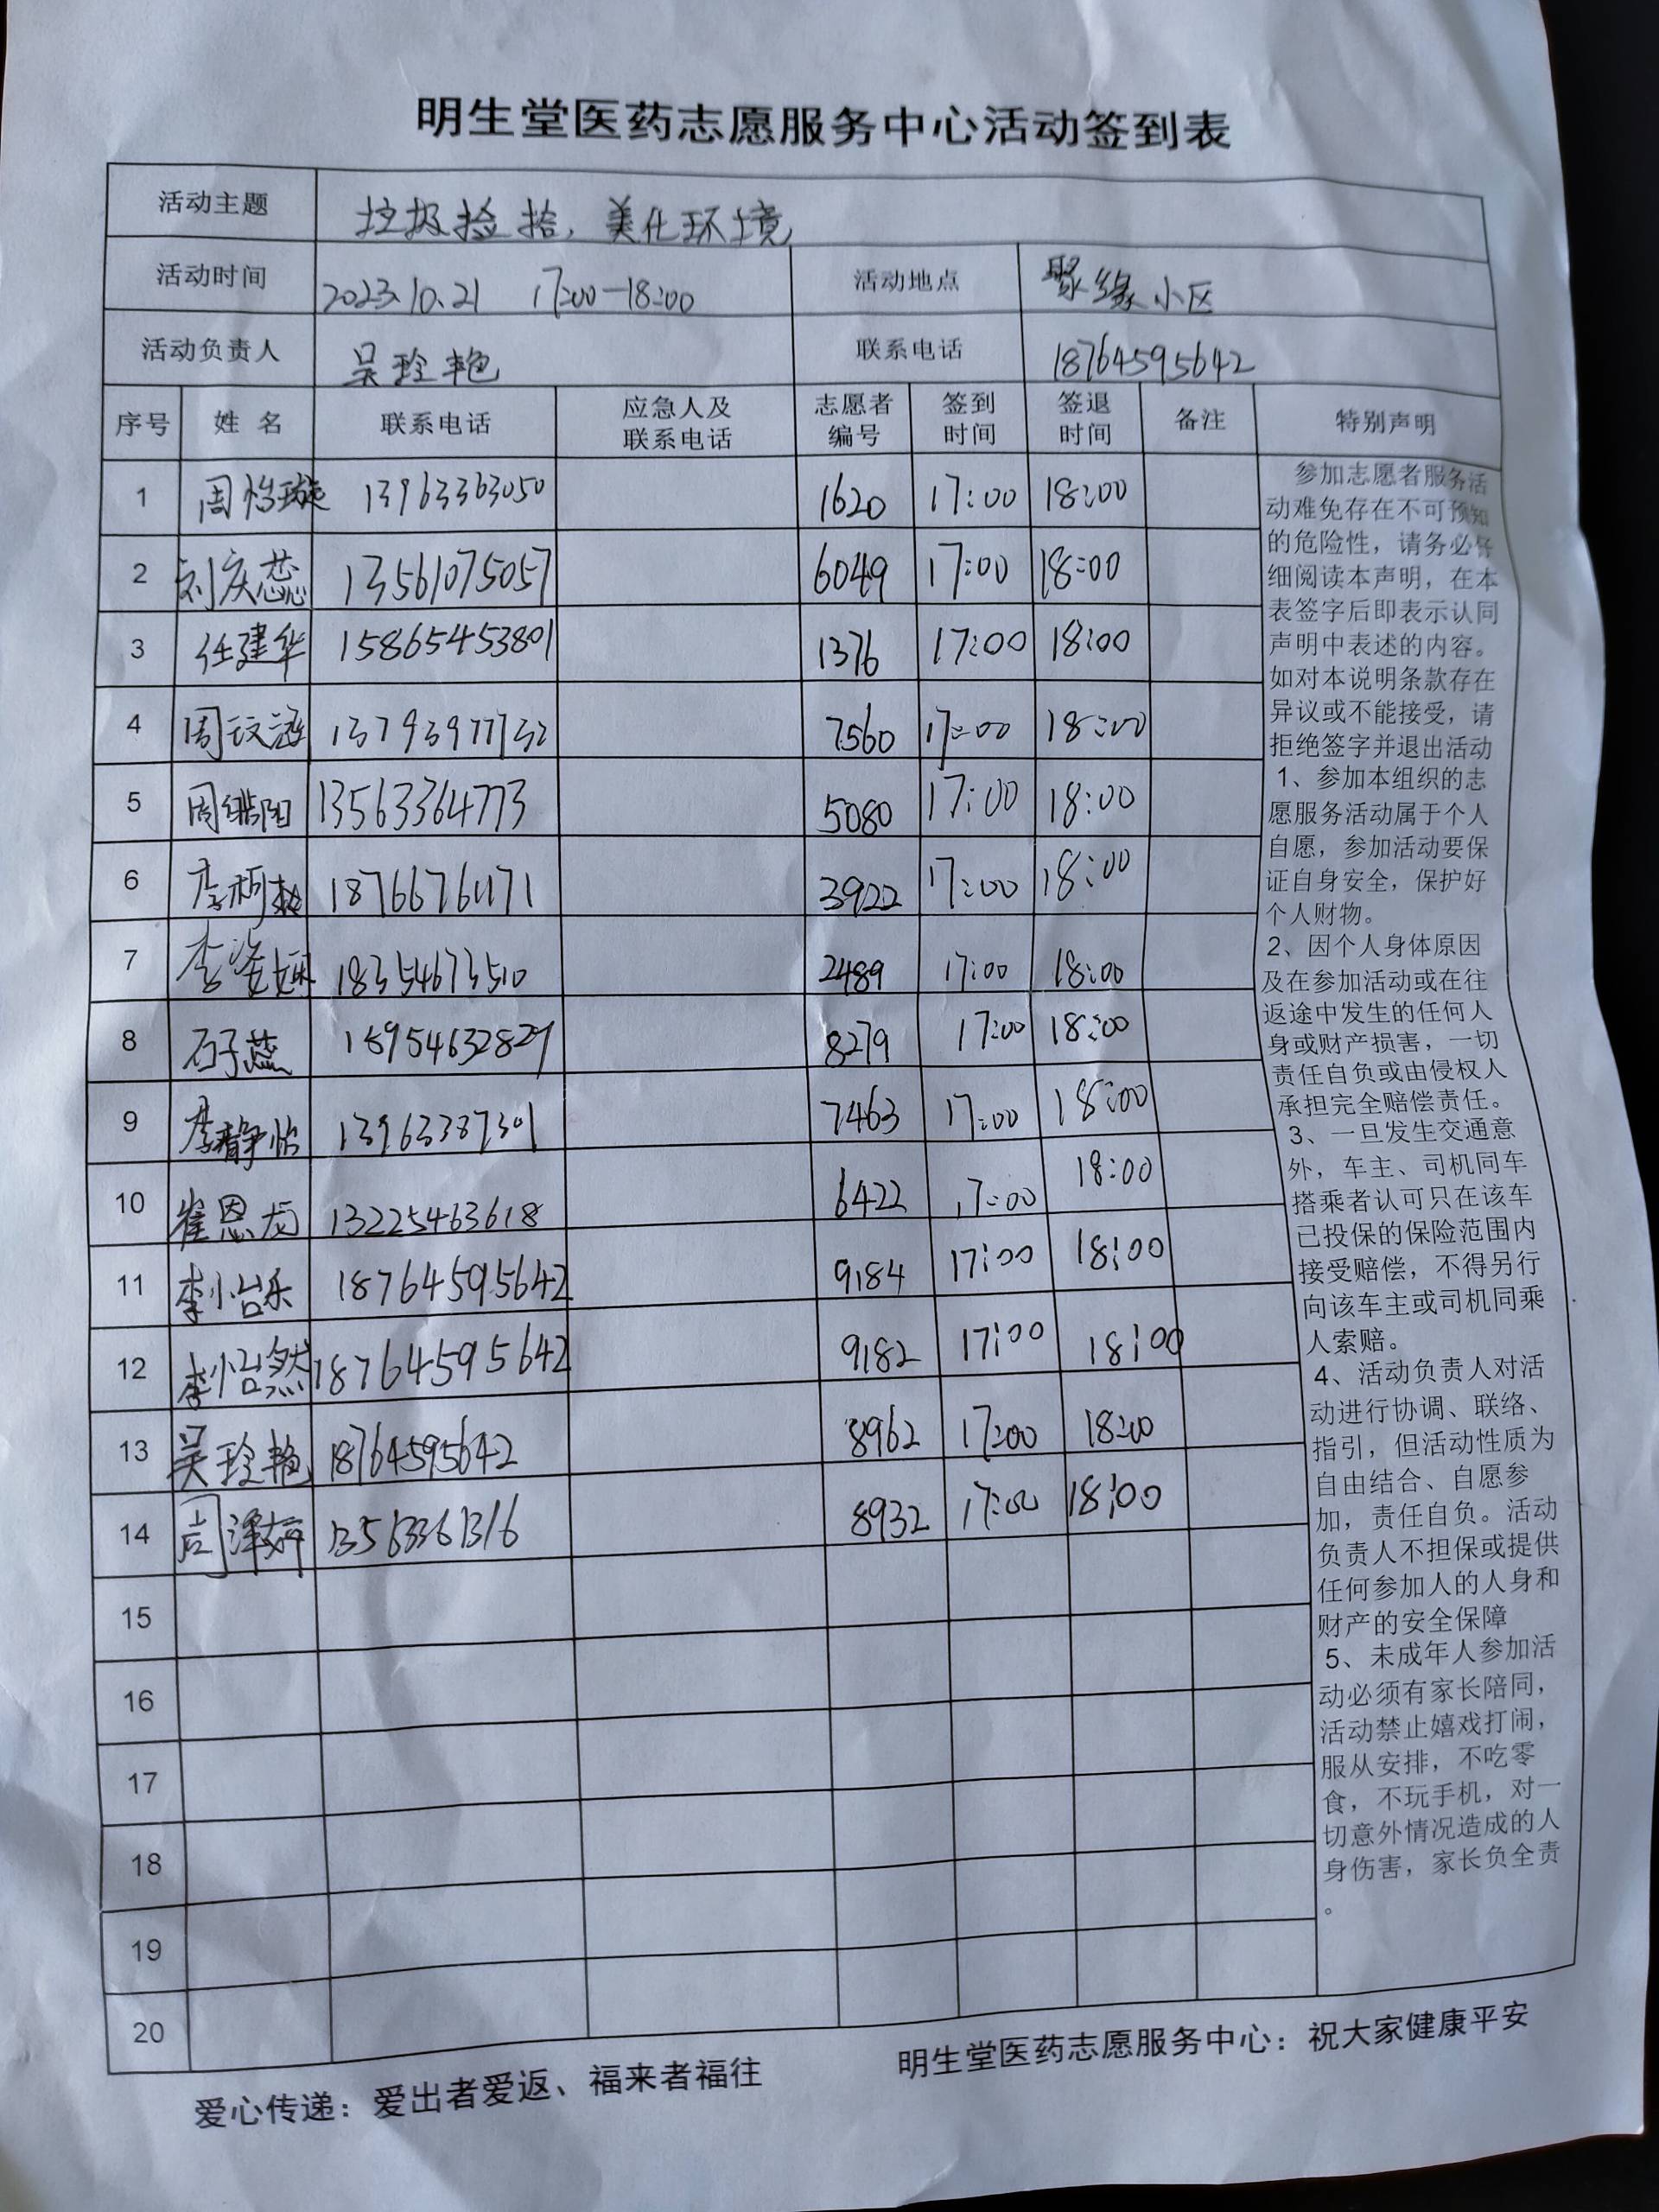 明生堂医药志愿服务中心活动签到表
活动主题 垃圾捡拾,美化环境
活动时间 2023.10.21 17:00-18:00 活动地点 聚缘小区
活动负责人 吴玲艳 联系电话 18764595642
序号 姓名 联系电话 应急人及联系电话 志愿者编号 签到时间 签退时间 备注 特别声明
1 周怡璇 13963363050 1620 17:00 18:00
2 刘庆蕊 13561075057 6049 17:00 18:00
3 任建华 15865453801 1376 17:00 18:00
4 周玟涵 13793977732 7560 17:00 18:00
5 周继阳 13563364773 5080 17:00 18:00
6 李柯 3922 17:00 18:00
7 李姿娴 18354673510 2489 17:00 18:00
8 石子蕊 18954632829 8279 17:00 18:00
9 李静怡 13963387301 7463 17:00 18:00
10 崔恩龙 13225463618 6422 17:00 18:00
11 李怡乐 18764595642 9184 17:00 18:00
12 李怡然 18764595642 9182 17:00 18:00
13 吴玲艳 18764595642 8962 17:00 18:00
14 周泽妍 13563361316 8932 17:00 18:00
15
16
17
18
19
20
参加志愿者服务活
动难免存在不可预知
的危险性,请务必仔
细阅读本声明,在本
表签字后即表示认同
声明中表述的内容。
如对本说明条款存在
异议或不能接受,请
拒绝签字并退出活动
1、参加本组织的志
愿服务活动属于个人
自愿,参加活动要保
证自身安全,保护好
个人财物。
2、因个人身体原因
及在参加活动或在往
返途中发生的任何人
身或财产损害,一切
责任自负或由侵权人
承担完全赔偿责任。
3、一旦发生交通意
外,车主、司机同车
搭乘者认可只在该车
已投保的保险范围内
接受赔偿,不得另行
向该车主或司机同乘
人索赔。
4、活动负责人对活
动进行协调、联络、
指引,但活动性质为
自由结合、自愿参
加,责任自负。活动
负责人不担保或提供
任何参加人的人身和
财产的安全保障
5、未成年人参加活
动必须有家长陪同,
活动禁止嬉戏打闹,
服从安排,不吃零
食,不玩手机,对一
切意外情况造成的人
身伤害,家长负全责
。
爱心传递:爱出者爱返、福来者福往 明生堂医药志愿服务中心:祝大家健康平安